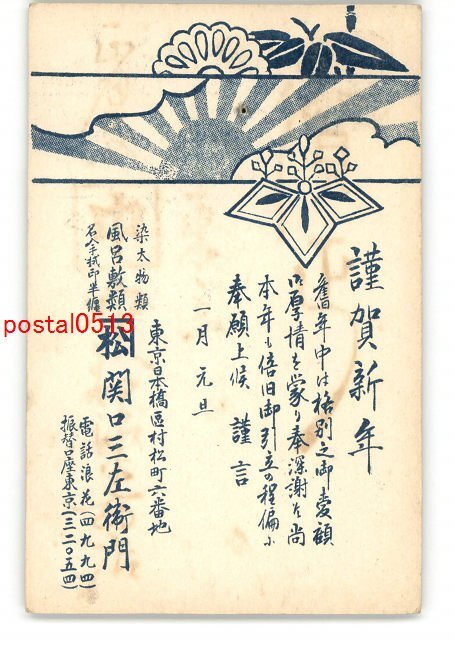 謹賀新年
舊年中は格別之御愛顧
御厚情を蒙り奉深謝候尚
本年も倍旧御引立の程偏に
奉願上候 謹言
一月元旦
東京日本橋區村松町六番地
染太物類
風呂敷類
名入手拭印半纏
松 関口三左衛門
電話浪花(四九九四)
振替口座東京(三二〇五四)
postal0513